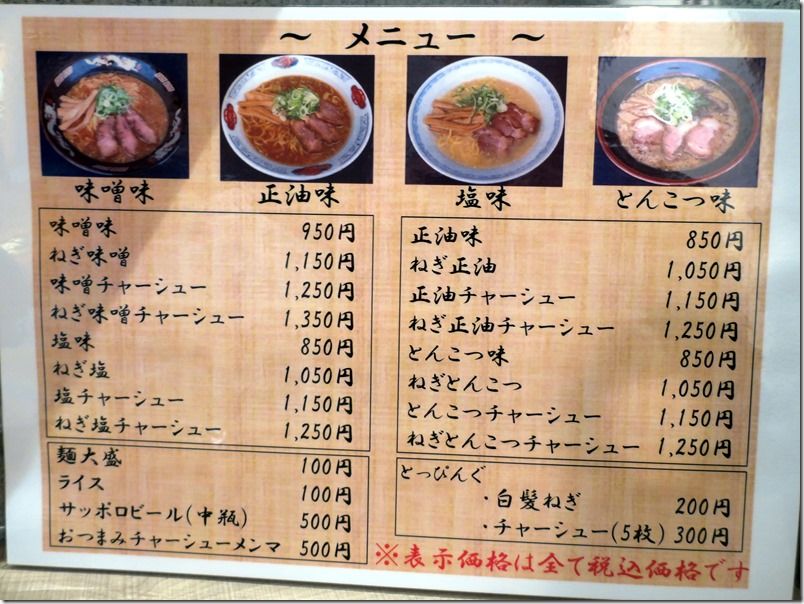 ～ メニュー ～
味噌味 正油味 塩味 とんこつ味
味噌味 950円
ねぎ味噌 1,150円
味噌チャーシュー 1,250円
ねぎ味噌チャーシュー 1,350円
塩味 850円
ねぎ塩 1,050円
塩チャーシュー 1,150円
ねぎ塩チャーシュー 1,250円
麺大盛 100円
ライス 100円
サッポロビール(中瓶) 500円
おつまみチャーシューメンマ 500円
正油味 850円
ねぎ正油 1,050円
正油チャーシュー 1,150円
ねぎ正油チャーシュー 1,250円
とんこつ味 850円
ねぎとんこつ 1,050円
とんこつチャーシュー 1,150円
ねぎとんこつチャーシュー 1,250円
とっぴんぐ
・白髪ねぎ 200円
・チャーシュー(5枚) 300円
※表示価格は全て税込価格です